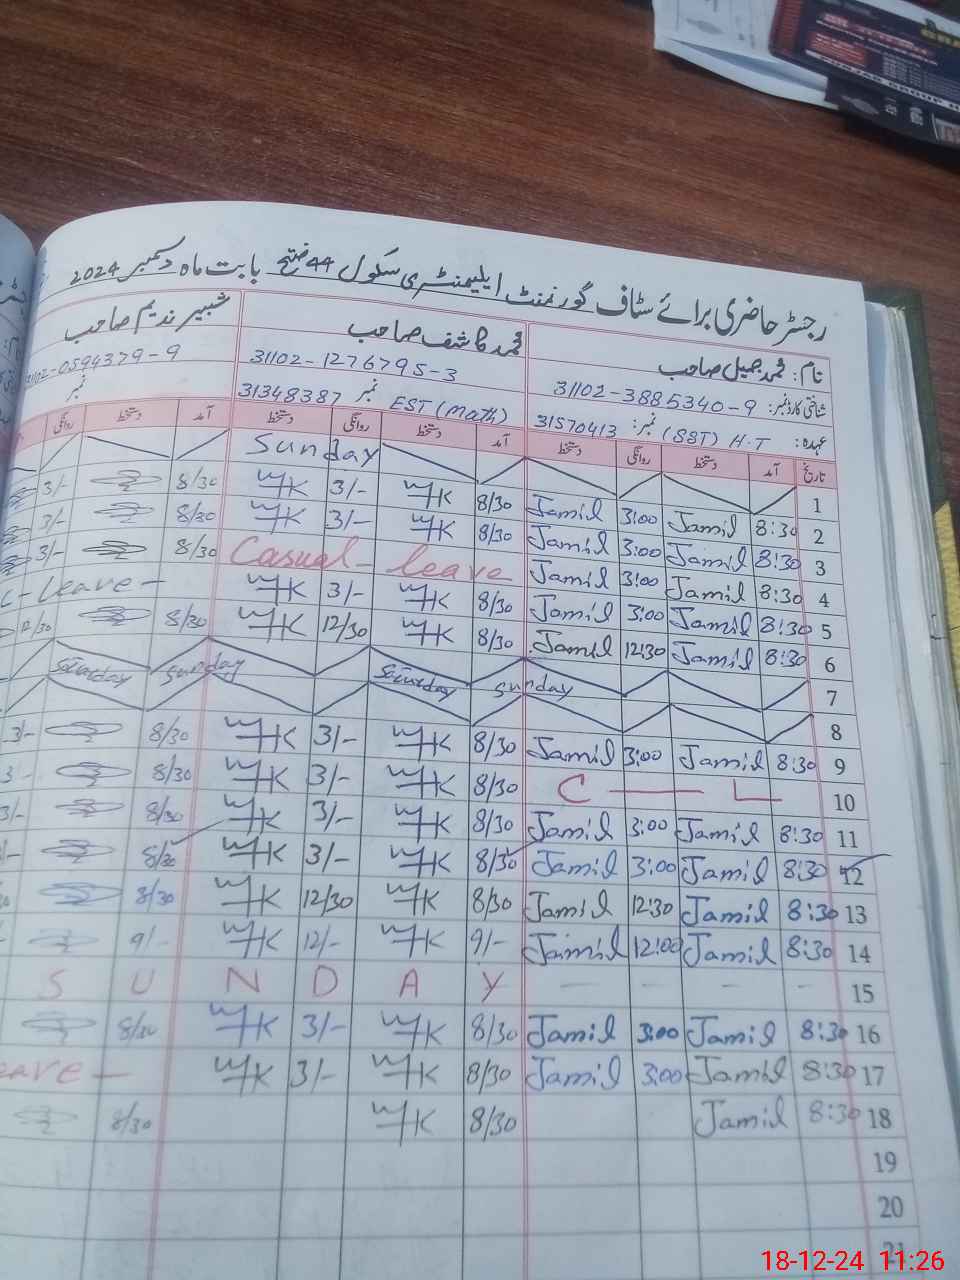 رجسٹر حاضری برائے سٹاف گورنمنٹ ایلیمنٹری سکول 44 فتح بابت ماہ دسمبر 2024
نام: محمد جمیل صاحب محمد کاشف صاحب شبیر ندیم صاحب
شناختی کارڈ نمبر: 31102-3885340-9 31102-1276795-3 31102-0594379-9
عہدہ: (SST) H.T نمبر: 31570413 EST (Math) نمبر 31348387 نمبر
تاریخ آمد دستخط روانگی دستخط آمد دستخط روانگی دستخط آمد دستخط روانگی
1 Sunday
2 8:30 Jamil 3:00 Jamil 8/30 3/- 8/30 3/-
3 8:30 Jamil 3:00 Jamil 8/30 3/- 8/30 3/-
4 8:30 Jamil 3:00 Jamil Casual - leave 8/30 3/-
5 8:30 Jamil 3:00 Jamil 8/30 3/- C-Leave-
6 8:30 Jamil 12:30 Jamil 8/30 12/30 8/30 12/30
7 Saturday Sunday Saturday Sunday
8
9 8:30 Jamil 3:00 Jamil 8/30 3/- 8/30 3/-
10 C — L 8/30 3/- 8/30 3-
11 8:30 Jamil 3:00 Jamil 8/30 3/- 8/30 3/-
12 8:30 Jamil 3:00 Jamil 8/30 3/- 8/30
13 8:30 Jamil 12:30 Jamil 8/30 12/30 8/30
14 8:30 Jamil 12:00 Jamil 9/- 12/- 9/-
15 S U N D A Y - - - -
16 8:30 Jamil 3:00 Jamil 8/30 3/- 8/30
17 8:30 Jamil 3:00 Jamil 8/30 3/- eave -
18 8:30 Jamil 8/30 8/30
19
20
21
18-12-24 11:26